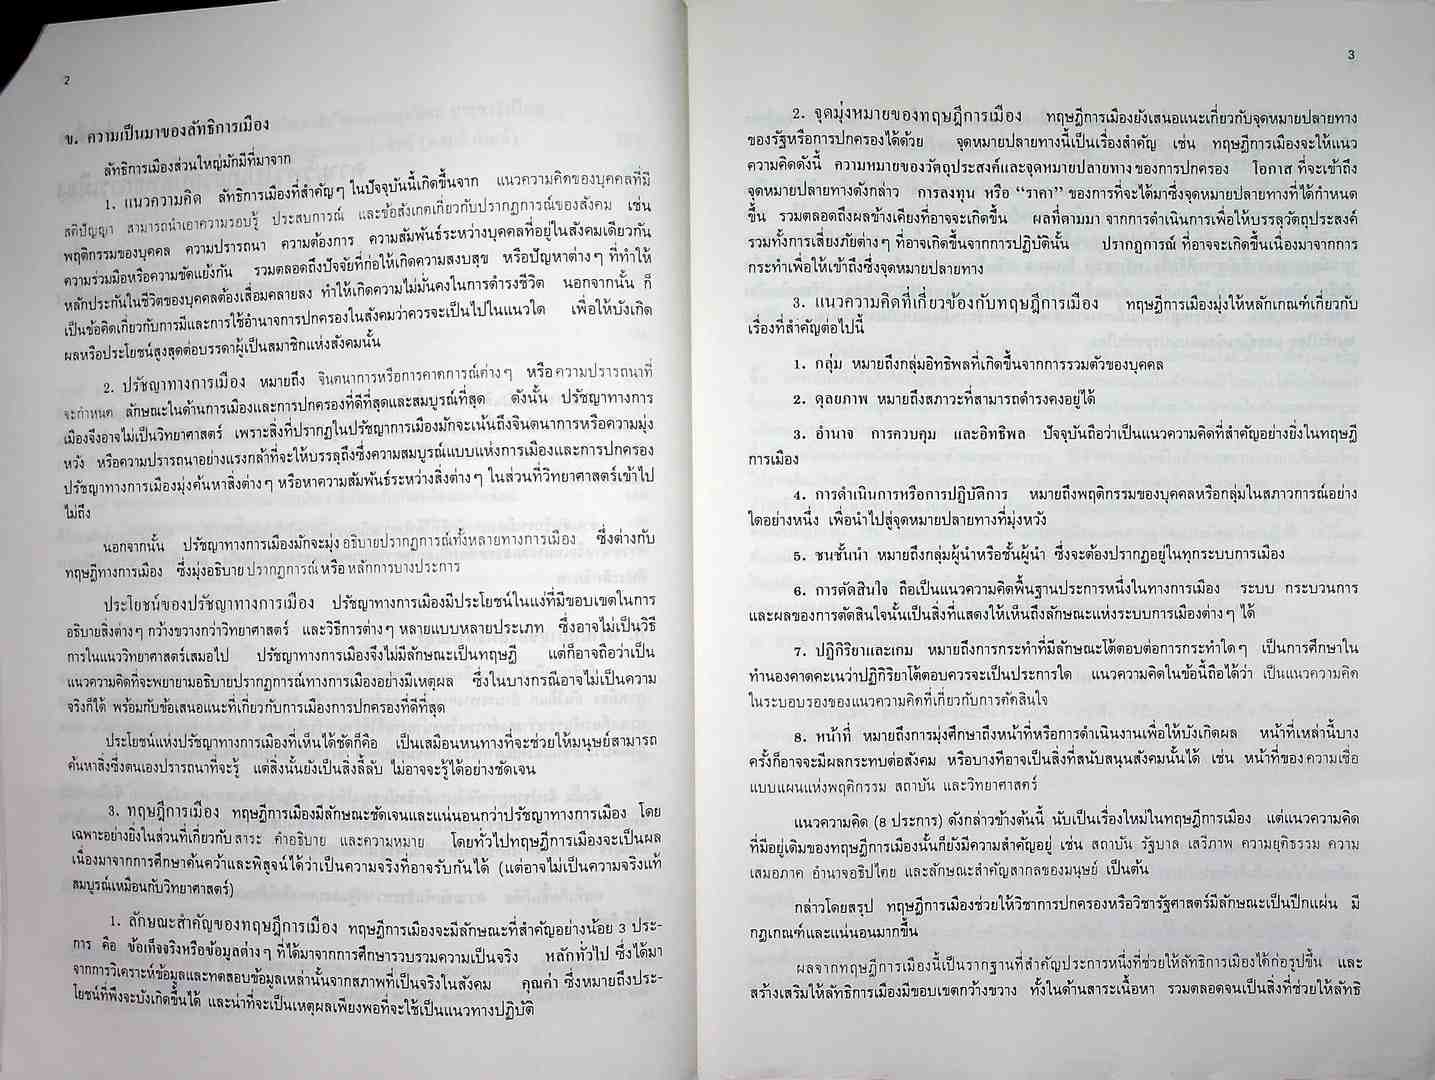 2
ข. ความเป็นมาของลัทธิการเมือง
ลัทธิการเมืองส่วนใหญ่มักมีที่มาจาก
1. แนวความคิด ลัทธิการเมืองที่สำคัญๆ ในปัจจุบันนี้เกิดขึ้นจาก แนวความคิดของบุคคลที่มี
สติปัญญา สามารถนำเอาความรอบรู้ ประสบการณ์ และข้อสังเกตเกี่ยวกับปรากฏการณ์ของสังคม เช่น
พฤติกรรมของบุคคล ความปรารถนา ความต้องการ ความสัมพันธ์ระหว่างบุคคลที่อยู่ในสังคมเดียวกัน
ความร่วมมือหรือความขัดแย้งกัน รวมตลอดถึงปัจจัยที่ก่อให้เกิดความสงบสุข หรือปัญหาต่างๆ ที่ทำให้
หลักประกันในชีวิตของบุคคลต้องเสื่อมคลายลง ทำให้เกิดความไม่มั่นคงในการดำรงชีวิต นอกจากนั้น ก็
เป็นข้อคิดเกี่ยวกับการมีและการใช้อำนาจการปกครองในสังคมว่าควรจะเป็นไปในแนวใด เพื่อให้บังเกิด
ผลหรือประโยชน์สูงสุดต่อบรรดาผู้เป็นสมาชิกแห่งสังคมนั้น
2. ปรัชญาทางการเมือง หมายถึง จินตนาการหรือการคาดการณ์ต่างๆ หรือความปรารถนาที่
จะกำหนด ลักษณะในด้านการเมืองและการปกครองที่ดีที่สุดและสมบูรณ์ที่สุด ดังนั้น ปรัชญาทางการ
เมืองจึงอาจไม่เป็นวิทยาศาสตร์ เพราะสิ่งที่ปรากฏในปรัชญาการเมืองมักจะเน้นถึงจินตนาการหรือความมุ่ง
หวัง หรือความปรารถนาอย่างแรงกล้าที่จะให้บรรลุถึงซึ่งความสมบูรณ์แบบแห่งการเมืองและการปกครอง
ปรัชญาทางการเมืองมุ่งค้นหาสิ่งต่างๆ หรือหาความสัมพันธ์ระหว่างสิ่งต่างๆ ในส่วนที่วิทยาศาสตร์เข้าไป
ไม่ถึง
นอกจากนั้น ปรัชญาทางการเมืองมักจะมุ่งอธิบายปรากฏการณ์ทั้งหลายทางการเมือง ซึ่งต่างกับ
ทฤษฎีทางการเมือง ซึ่งมุ่งอธิบายปรากฏการณ์ หรือ หลักการบางประการ
ประโยชน์ของปรัชญาทางการเมือง ปรัชญาทางการเมืองมีประโยชน์ในแง่ที่มีขอบเขตในการ
อธิบายสิ่งต่างๆ กว้างขวางกว่าวิทยาศาสตร์ และวิธีการต่างๆ หลายแบบหลายประเภท ซึ่งอาจไม่เป็นวิธี
การในแนววิทยาศาสตร์เสมอไป ปรัชญาทางการเมืองจึงไม่มีลักษณะเป็นทฤษฎี แต่ก็อาจถือว่าเป็น
แนวความคิดที่จะพยายามอธิบายปรากฏการณ์ทางการเมืองอย่างมีเหตุผล ซึ่งในบางกรณีอาจไม่เป็นความ
จริงก็ได้ พร้อมกับข้อเสนอแนะที่เกี่ยวกับการเมืองการปกครองที่ดีที่สุด
ประโยชน์แห่งปรัชญาทางการเมืองที่เห็นได้ชัดก็คือ เป็นเสมือนหนทางที่จะช่วยให้มนุษย์สามารถ
ค้นหาสิ่งซึ่งตนเองปรารถนาที่จะรู้ แต่สิ่งนั้นยังเป็นสิ่งลี้ลับ ไม่อาจจะรู้ได้อย่างชัดเจน
3. ทฤษฎีการเมือง ทฤษฎีการเมืองมีลักษณะชัดเจนและแน่นอนกว่าปรัชญาทางการเมือง โดย
เฉพาะอย่างยิ่งในส่วนที่เกี่ยวกับสาระ คำอธิบาย และความหมาย โดยทั่วไปทฤษฎีการเมืองจะเป็นผล
เนื่องมาจากการศึกษาค้นคว้าและพิสูจน์ได้ว่าเป็นความจริงที่อาจรับกันได้ (แต่อาจไม่เป็นความจริงแท้
สมบูรณ์เหมือนกับวิทยาศาสตร์)
1. ลักษณะสำคัญของทฤษฎีการเมือง ทฤษฎีการเมืองจะมีลักษณะที่สำคัญอย่างน้อย 3 ประ-
การ คือ ข้อเท็จจริงหรือข้อมูลต่างๆ ที่ได้มาจากการศึกษารวบรวมความเป็นจริง หลักทั่วไป ซึ่งได้มา
จากการวิเคราะห์ข้อมูลและทดสอบข้อมูลเหล่านั้นจากสภาพที่เป็นจริงในสังคม คุณค่า ซึ่งหมายถึงประ-
โยชน์ที่พึงจะบังเกิดขึ้นได้ และน่าที่จะเป็นเหตุผลเพียงพอที่จะใช้เป็นแนวทางปฏิบัติ
3
2. จุดมุ่งหมายของทฤษฎีการเมือง ทฤษฎีการเมืองยังเสนอแนะเกี่ยวกับจุดหมายปลายทาง
ของรัฐหรือการปกครองได้ด้วย จุดหมายปลายทางนี้เป็นเรื่องสำคัญ เช่น ทฤษฎีการเมืองจะให้แนว
ความคิดดังนี้ ความหมายของวัตถุประสงค์และจุดหมายปลายทางของการปกครอง โอกาสที่จะเข้าถึง
จุดหมายปลายทางดังกล่าว การลงทุน หรือ “ราคา” ของการที่จะได้มาซึ่งจุดหมายปลายทางที่ได้กำหนด
ขึ้น รวมตลอดถึงผลข้างเคียงที่อาจจะเกิดขึ้น ผลที่ตามมา จากการดำเนินการเพื่อให้บรรลุวัตถุประสงค์
รวมทั้งการเสี่ยงภัยต่างๆ ที่อาจเกิดขึ้นจากการปฏิบัตินั้น ปรากฏการณ์ ที่อาจจะเกิดขึ้นเนื่องมาจากการ
กระทำเพื่อให้เข้าถึงซึ่งจุดหมายปลายทาง
3. แนวความคิดที่เกี่ยวข้องกับทฤษฎีการเมือง ทฤษฎีการเมืองมุ่งให้หลักเกณฑ์เกี่ยวกับ
เรื่องที่สำคัญต่อไปนี้
1. กลุ่ม หมายถึงกลุ่มอิทธิพลที่เกิดขึ้นจากการรวมตัวของบุคคล
2. ดุลยภาพ หมายถึงสภาวะที่สามารถดำรงคงอยู่ได้
3. อำนาจ การควบคุม และอิทธิพล ปัจจุบันถือว่าเป็นแนวความคิดที่สำคัญอย่างยิ่งในทฤษฎี
การเมือง
4. การดำเนินการหรือการปฏิบัติการ หมายถึงพฤติกรรมของบุคคลหรือกลุ่มในสภาวการณ์อย่าง
ใดอย่างหนึ่ง เพื่อนำไปสู่จุดหมายปลายทางที่มุ่งหวัง
5. ชนชั้นนำ หมายถึงกลุ่มผู้นำหรือชั้นผู้นำ ซึ่งจะต้องปรากฏอยู่ในทุกระบบการเมือง
6. การตัดสินใจ ถือเป็นแนวความคิดพื้นฐานประการหนึ่งในทางการเมือง ระบบ กระบวนการ
และผลของการตัดสินใจนั้นเป็นสิ่งที่แสดงให้เห็นถึงลักษณะแห่งระบบการเมืองต่างๆ ได้
7. ปฏิกิริยาและเกม หมายถึงการกระทำที่มีลักษณะโต้ตอบต่อการกระทำใดๆ เป็นการศึกษาใน
ทำนองคาดคะเนว่าปฏิกิริยาโต้ตอบควรจะเป็นประการใด แนวความคิดในข้อนี้ถือได้ว่า เป็นแนวความคิด
ในระบอบรองของแนวความคิดที่เกี่ยวกับการตัดสินใจ
8. หน้าที่ หมายถึงการมุ่งศึกษาถึงหน้าที่หรือการดำเนินงานเพื่อให้บังเกิดผล หน้าที่เหล่านี้บาง
ครั้งก็อาจจะมีผลกระทบต่อสังคม หรือบางทีอาจเป็นสิ่งที่สนับสนุนสังคมนั้นได้ เช่น หน้าที่ของความเชื่อ
แบบแผนแห่งพฤติกรรม สถาบัน และวิทยาศาสตร์
แนวความคิด (8 ประการ) ดังกล่าวข้างต้นนี้ นับเป็นเรื่องใหม่ในทฤษฎีการเมือง แต่แนวความคิด
ที่มีอยู่เดิมของทฤษฎีการเมืองนั้นก็ยังมีความสำคัญอยู่ เช่น สถาบัน รัฐบาล เสรีภาพ ความยุติธรรม ความ
เสมอภาค อำนาจอธิปไตย และลักษณะสำคัญสากลของมนุษย์ เป็นต้น
กล่าวโดยสรุป ทฤษฎีการเมืองช่วยให้วิชาการปกครองหรือวิชารัฐศาสตร์มีลักษณะเป็นปึกแผ่น มี
กฎเกณฑ์และแน่นอนมากขึ้น
ผลจากทฤษฎีการเมืองนี้เป็นรากฐานที่สำคัญประการหนึ่งที่ช่วยให้ลัทธิการเมืองได้ก่อรูปขึ้น และ
สร้างเสริมให้ลัทธิการเมืองมีขอบเขตกว้างขวาง ทั้งในด้านสาระเนื้อหา รวมตลอดจนเป็นสิ่งที่ช่วยให้ลัทธิ